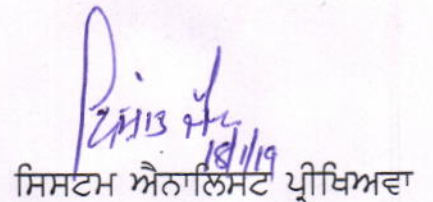 18/1/19
ਸਿਸਟਮ ਐਨਾਲਿਸਟ ਪ੍ਰੀਖਿਅਵਾ